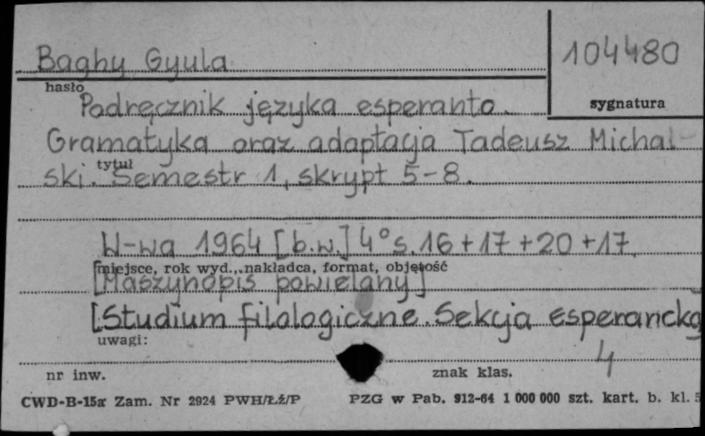 Baghy Gyula
104480
hasło
sygnatura
Podręcznik języka esperanto.
Gramatyka oraz adaptacja Tadeusz Michal-
tytuł
ski. Semestr 1, skrypt 5-8.
W-wa 1964 [b.w.] 4° s. 16+17+20+17.
miejsce, rok wyd., nakładca, format, objętość
[Maszynopis powielany]
[Studium filologiczne. Sekcja esperancka
uwagi:
4
nr inw.
znak klas.
CWD-B-15a Zam. Nr 2924 PWH/Łź/P
PZG w Pab. 912-64 1 000 000 szt. kart. b. kl. 5